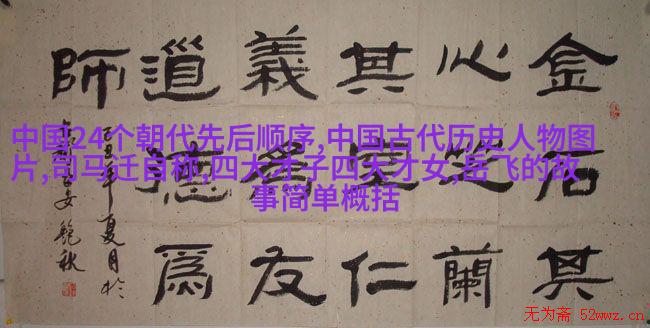 中国24个朝代先后顺序,中国古代历史人物图
片,司马迁自称,四大才子四大才女,岳飞的故
事简单概括
金石其
心芝蘭
其室仁
義爲友
道德爲
師
无为斋 52wwz.cn